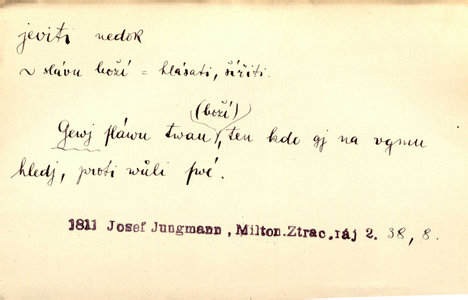 jeviti nedok
~ slávu boží = hlásati, šířiti.
(boží)
Gewj sláwu twau, ten kdo gj na vgmu
hledj, proti wůli swé.
1811 Josef Jungmann, Milton.Ztrac.ráj 2. 38, 8.